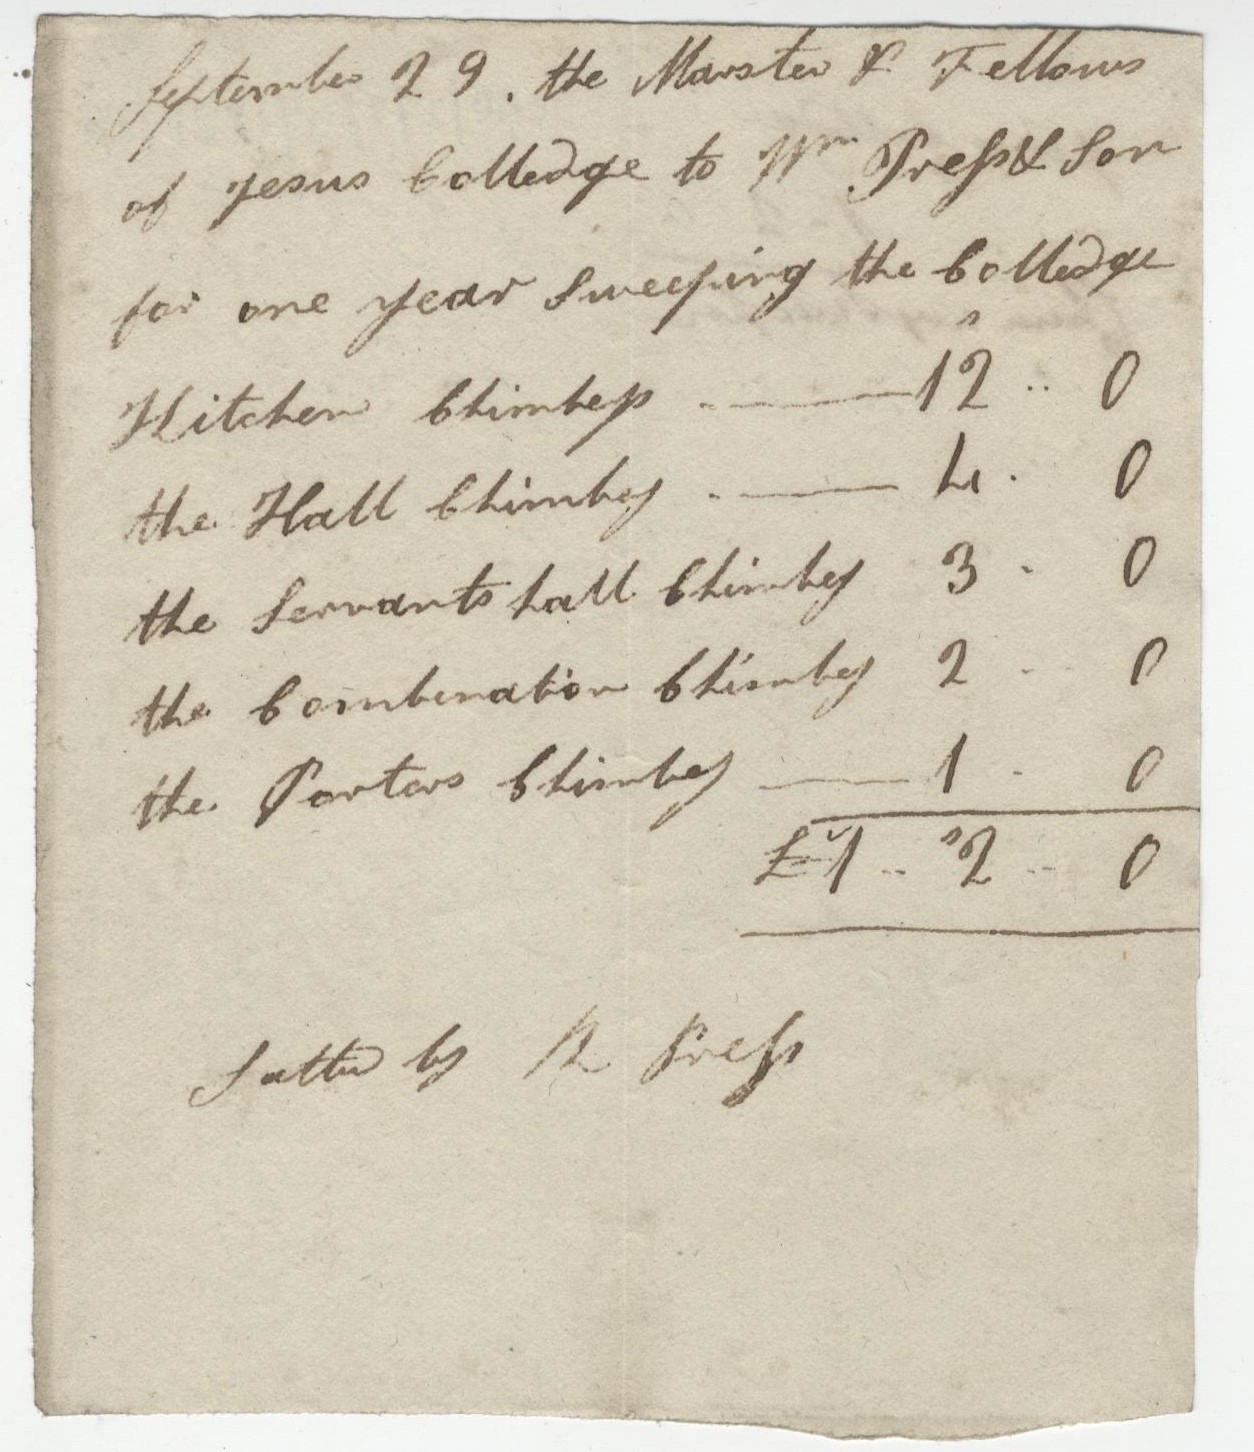 September 29. the Marster & Fellows
of Jesus Colledge to Wm Press & Son
for one year Sweeping the Colledge
Kitchen Chimbeys 12 .. 0
the Hall Chimbey 4 . 0
the Servants hall Chimbey 3 . 0
the Combenation Chimbey 2 .. 0
the Portors Chimbey 1 . 0
£1 .. s2 .. 0
Sattled by R Press